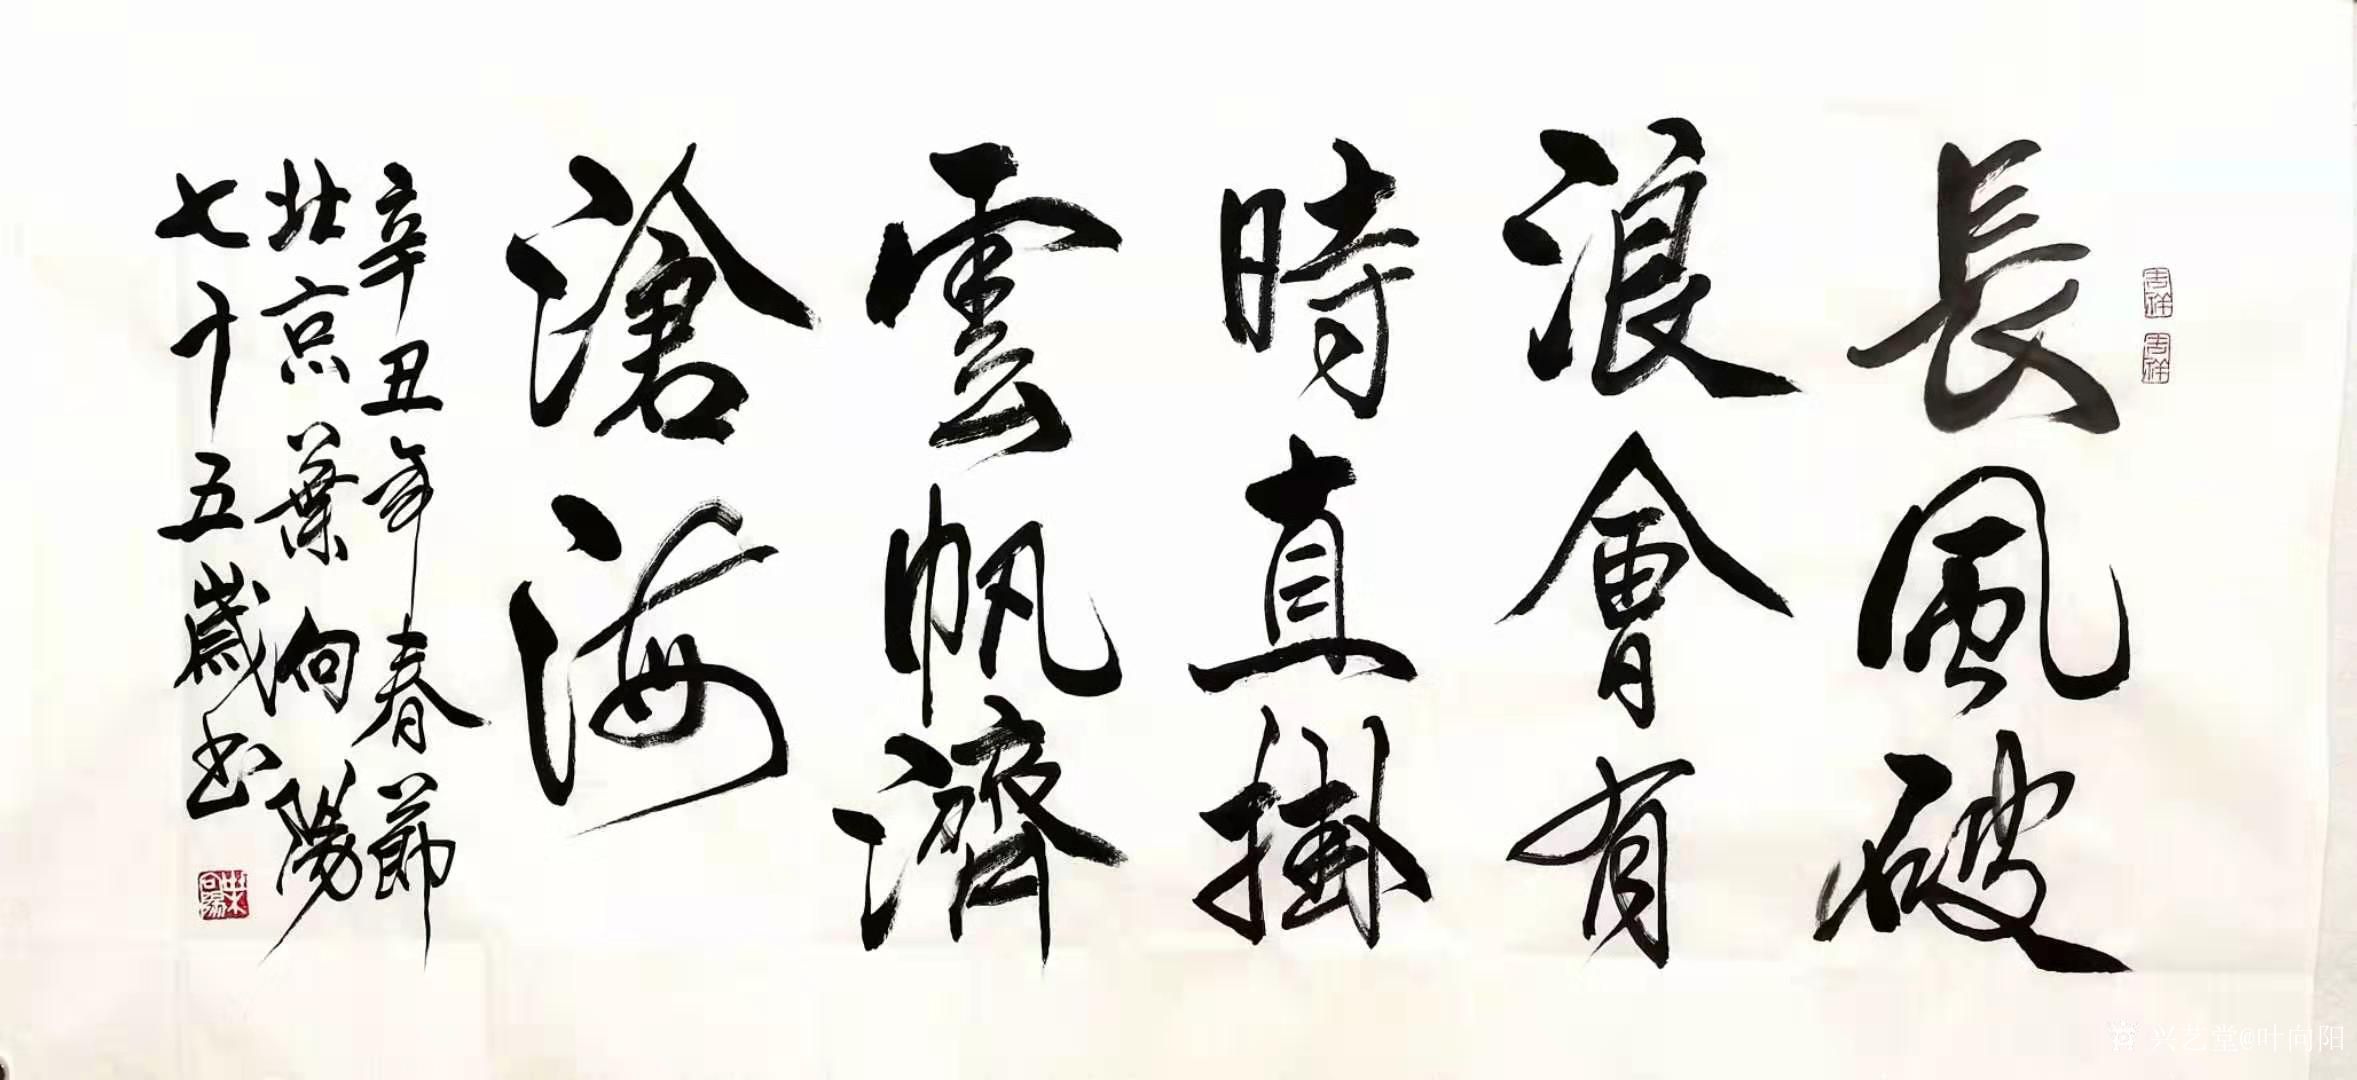 長風破
浪會有
時直掛
雲帆濟
滄海
辛丑年春節
北京葉向陽
七十五歲书
吉祥
吉祥
葉向陽
兴艺堂@叶向阳